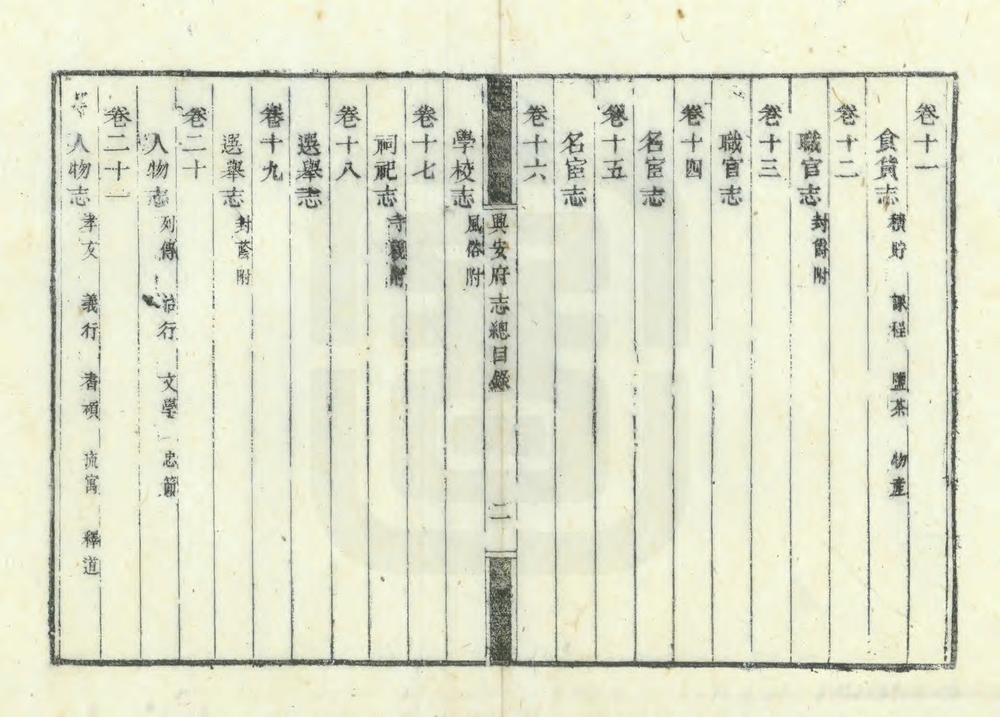 卷十一
食貨志 積貯 課程 鹽茶 物產
卷十二
職官志 封爵附
卷十三
職官志
卷十四
名宦志
卷十五
名宦志
卷十六
興安府志總目錄 二
學校志 風俗附
卷十七
祠祀志 寺觀附
卷十八
選舉志
卷十九
選舉志 封蔭附
卷二十
人物志 列傳 治行 文學 忠節
卷二十一
人物志 孝友 義行 耆碩 流寓 釋道